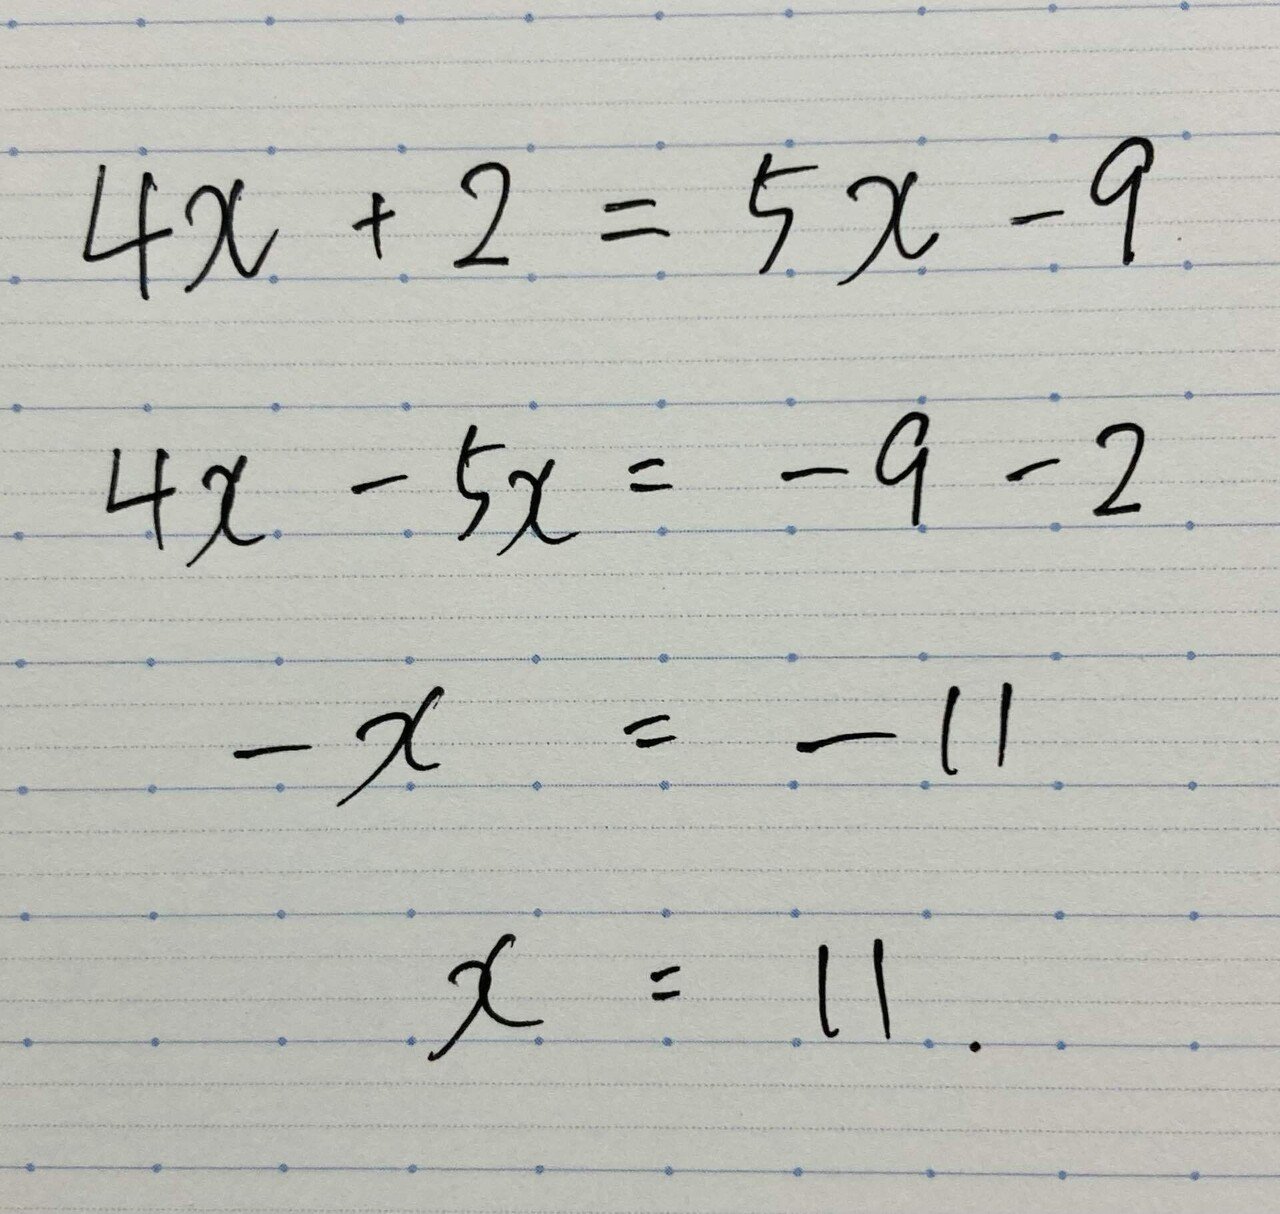 4x + 2 = 5x - 9
4x - 5x = - 9 - 2
- x = - 11
x = 11.